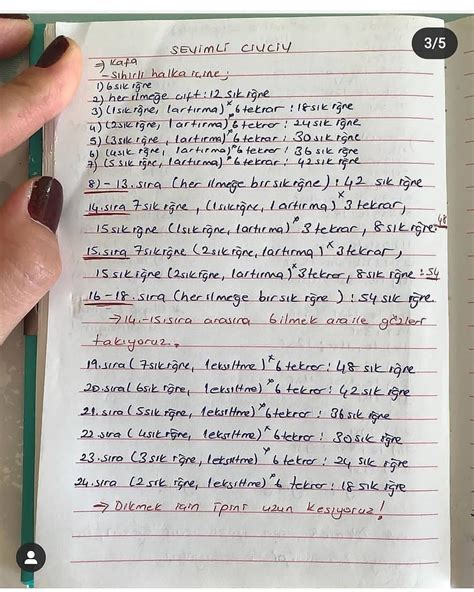 3/5
SEVİMLİ CİVCİV
→ Kafa
- Sihirli halka içine;
1) 6 sık iğne
2) her ilmeğe çift : 12 sık iğne
3) (1 sık iğne, 1 artırma) * 6 tekrar : 18 sık iğne
4) (2 sık iğne, 1 artırma) * 6 tekrar : 24 sık iğne
5) (3 sık iğne, 1 artırma) * 6 tekrar : 30 sık iğne
6) (4 sık iğne, 1 artırma) * 6 tekrar : 36 sık iğne
7) (5 sık iğne, 1 artırma) * 6 tekrar : 42 sık iğne
8) - 13. sıra (her ilmeğe bir sık iğne) : 42 sık iğne
14. sıra 7 sık iğne, (1 sık iğne, 1 artırma) * 3 tekrar,
15 sık iğne (1 sık iğne, 1 artırma) * 3 tekrar, 8 sık iğne : 48
15. sıra 7 sık iğne (2 sık iğne, 1 artırma) * 3 tekrar,
15 sık iğne (2 sık iğne, 1 artırma) * 3 tekrar, 8 sık iğne : 54
16 - 18. sıra (her ilmeğe bir sık iğne) : 54 sık iğne.
→ 14.-15. sıra arasına 6 ilmek ara ile gözleri
takıyoruz.
19. sıra (7 sık iğne, 1 eksiltme) * 6 tekrar : 48 sık iğne
20. sıra (6 sık iğne, 1 eksiltme) * 6 tekrar : 42 sık iğne
21. sıra (5 sık iğne, 1 eksiltme) * 6 tekrar : 36 sık iğne
22. sıra (4 sık iğne, 1 eksiltme) * 6 tekrar : 30 sık iğne
23. sıra (3 sık iğne, 1 eksiltme) * 6 tekrar : 24 sık iğne
24. sıra (2 sık iğne, 1 eksiltme) * 6 tekrar : 18 sık iğne
→ Dikmek için ipini uzun kesiyoruz!